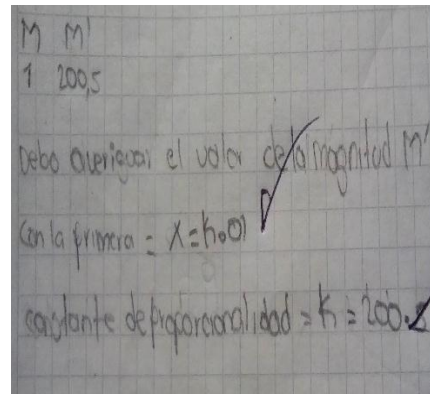 M M'
1 200,5
Debo averiguar el valor de la magnitud M'
Con la primera = X = K.01
constante de proporcionalidad = K = 200.5